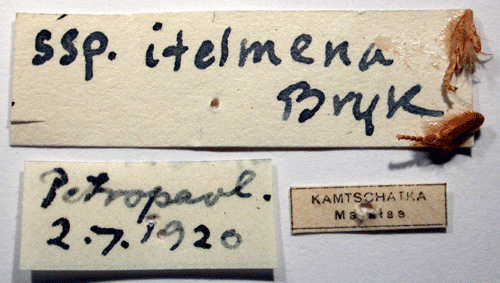 ssp. itelmena
Bryk
Petropavl.
2.7.1920
KAMTSCHATKA
Malaise